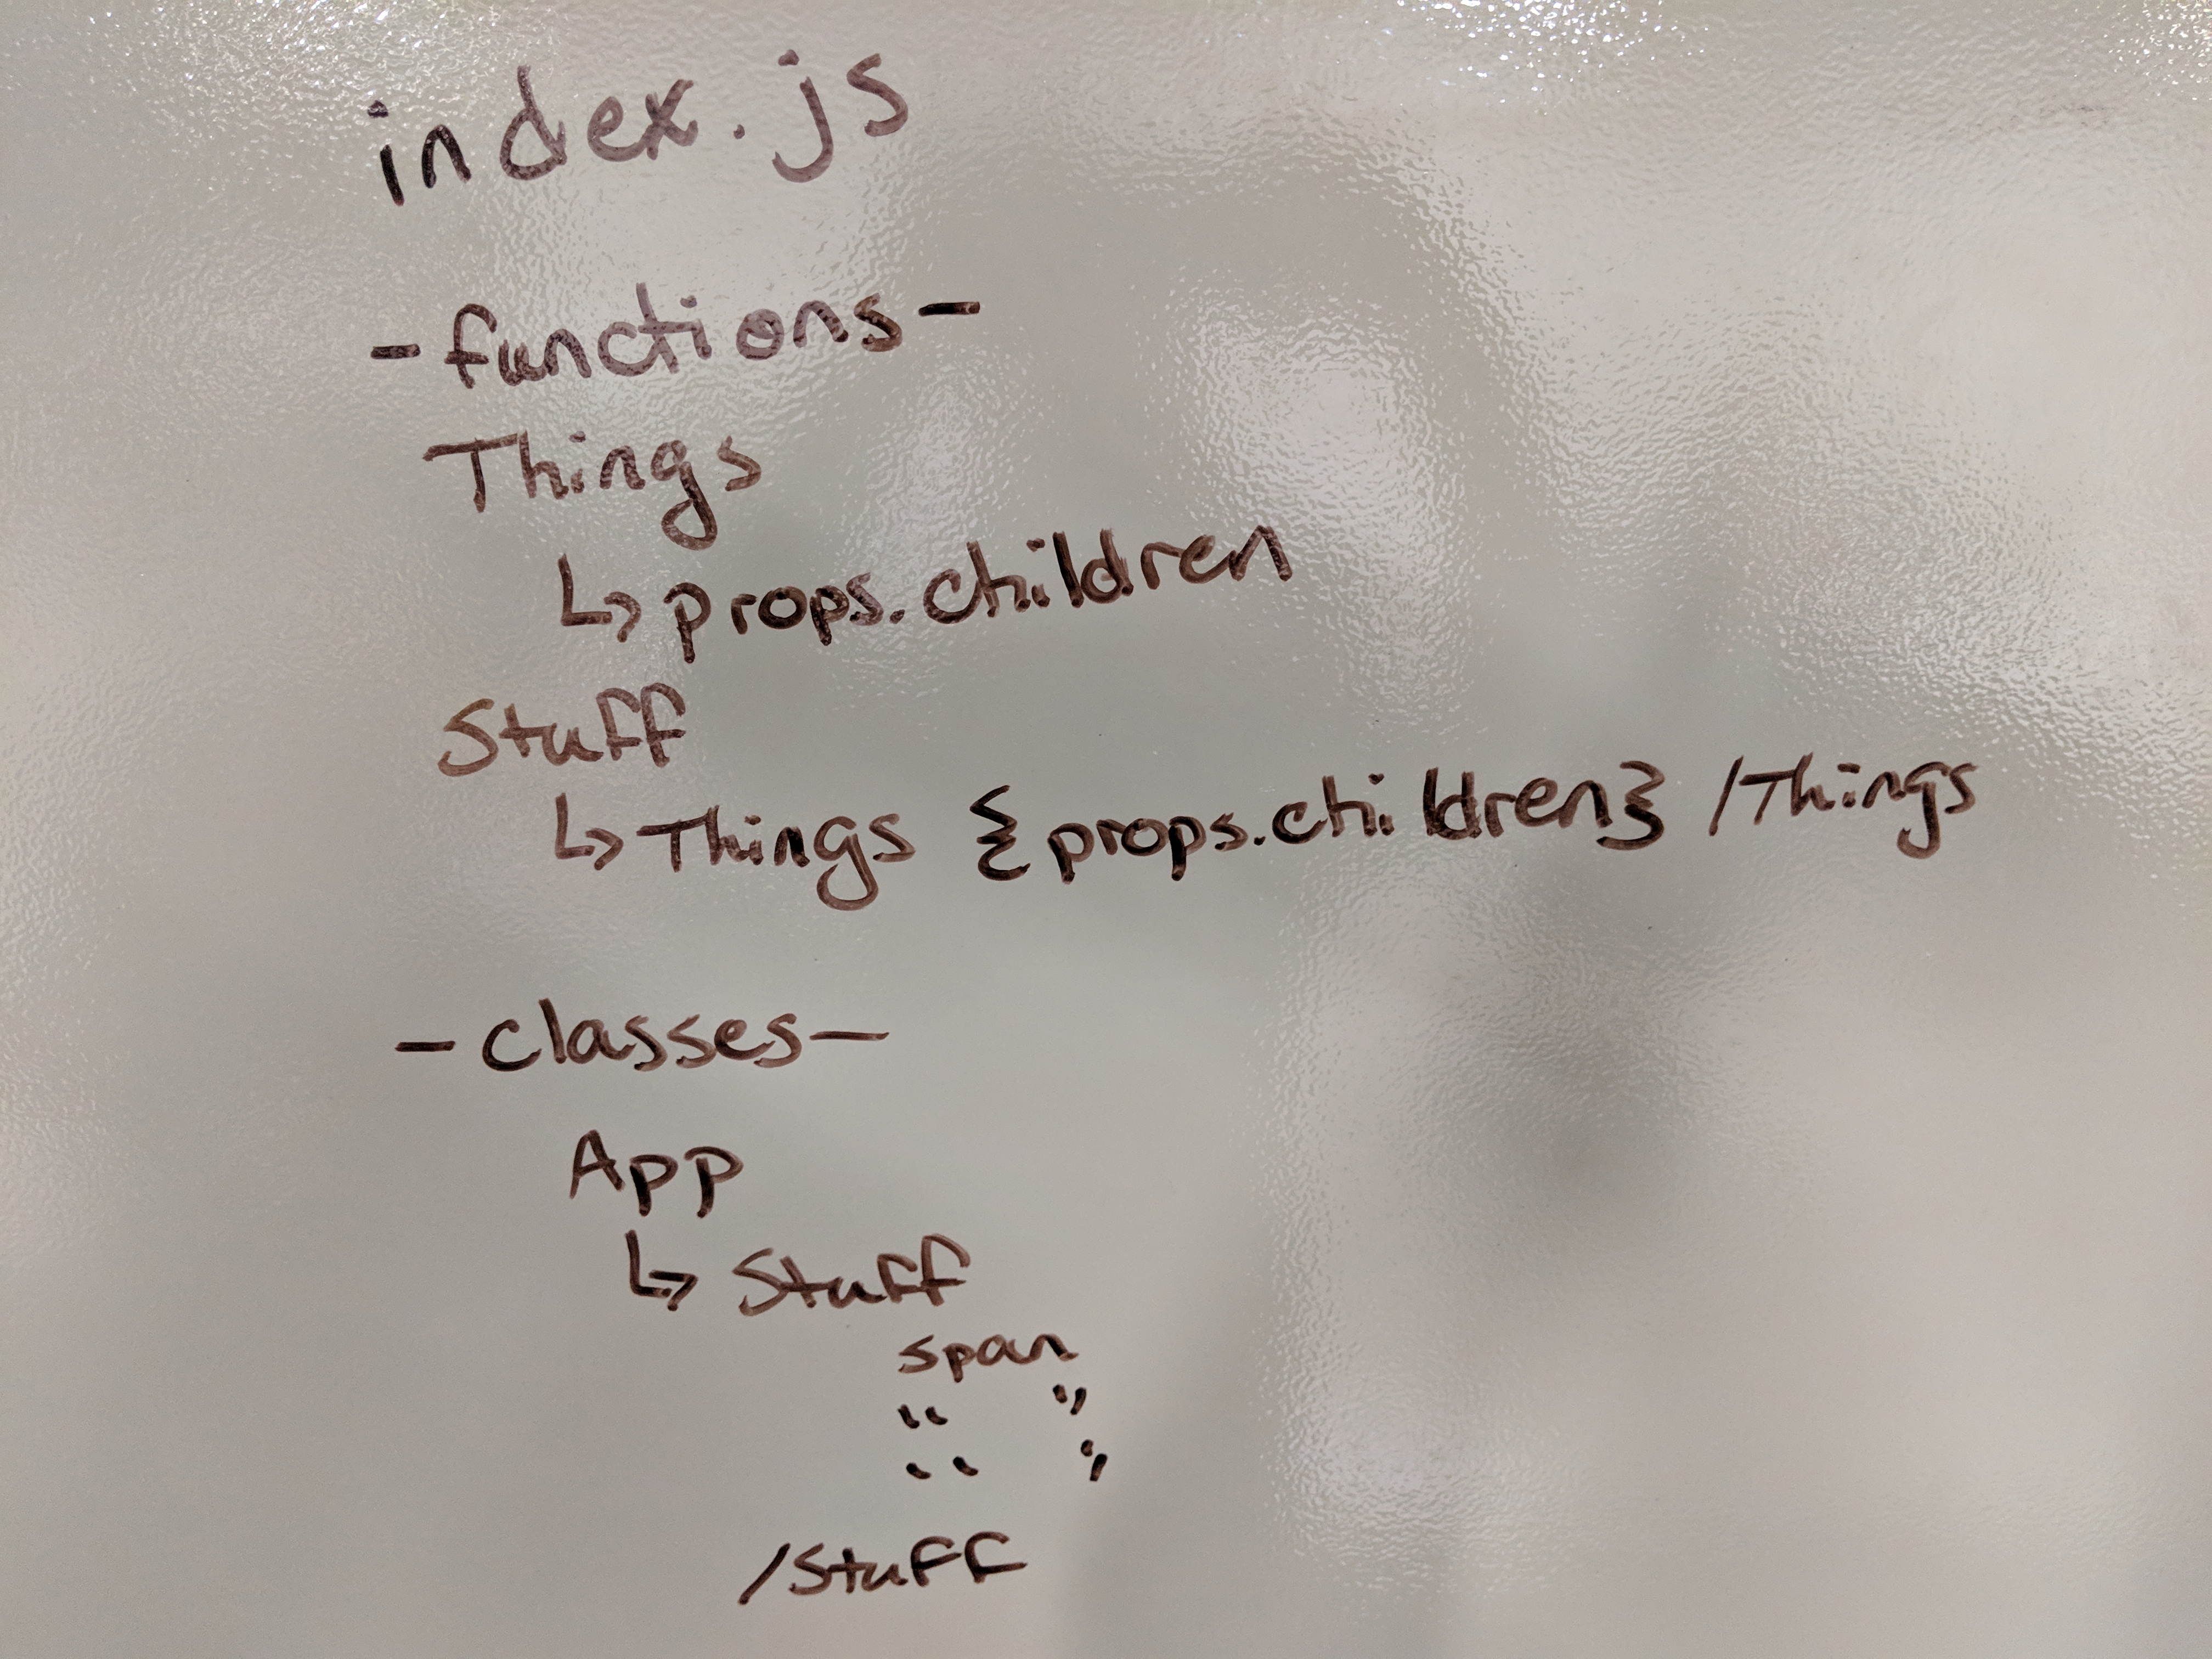 index.js
-functions-
Things
↳ props.children
Stuff
↳ Things {props.children} /Things
-classes-
App
↳ Stuff
span
“ ”
“ ”
/Stuff